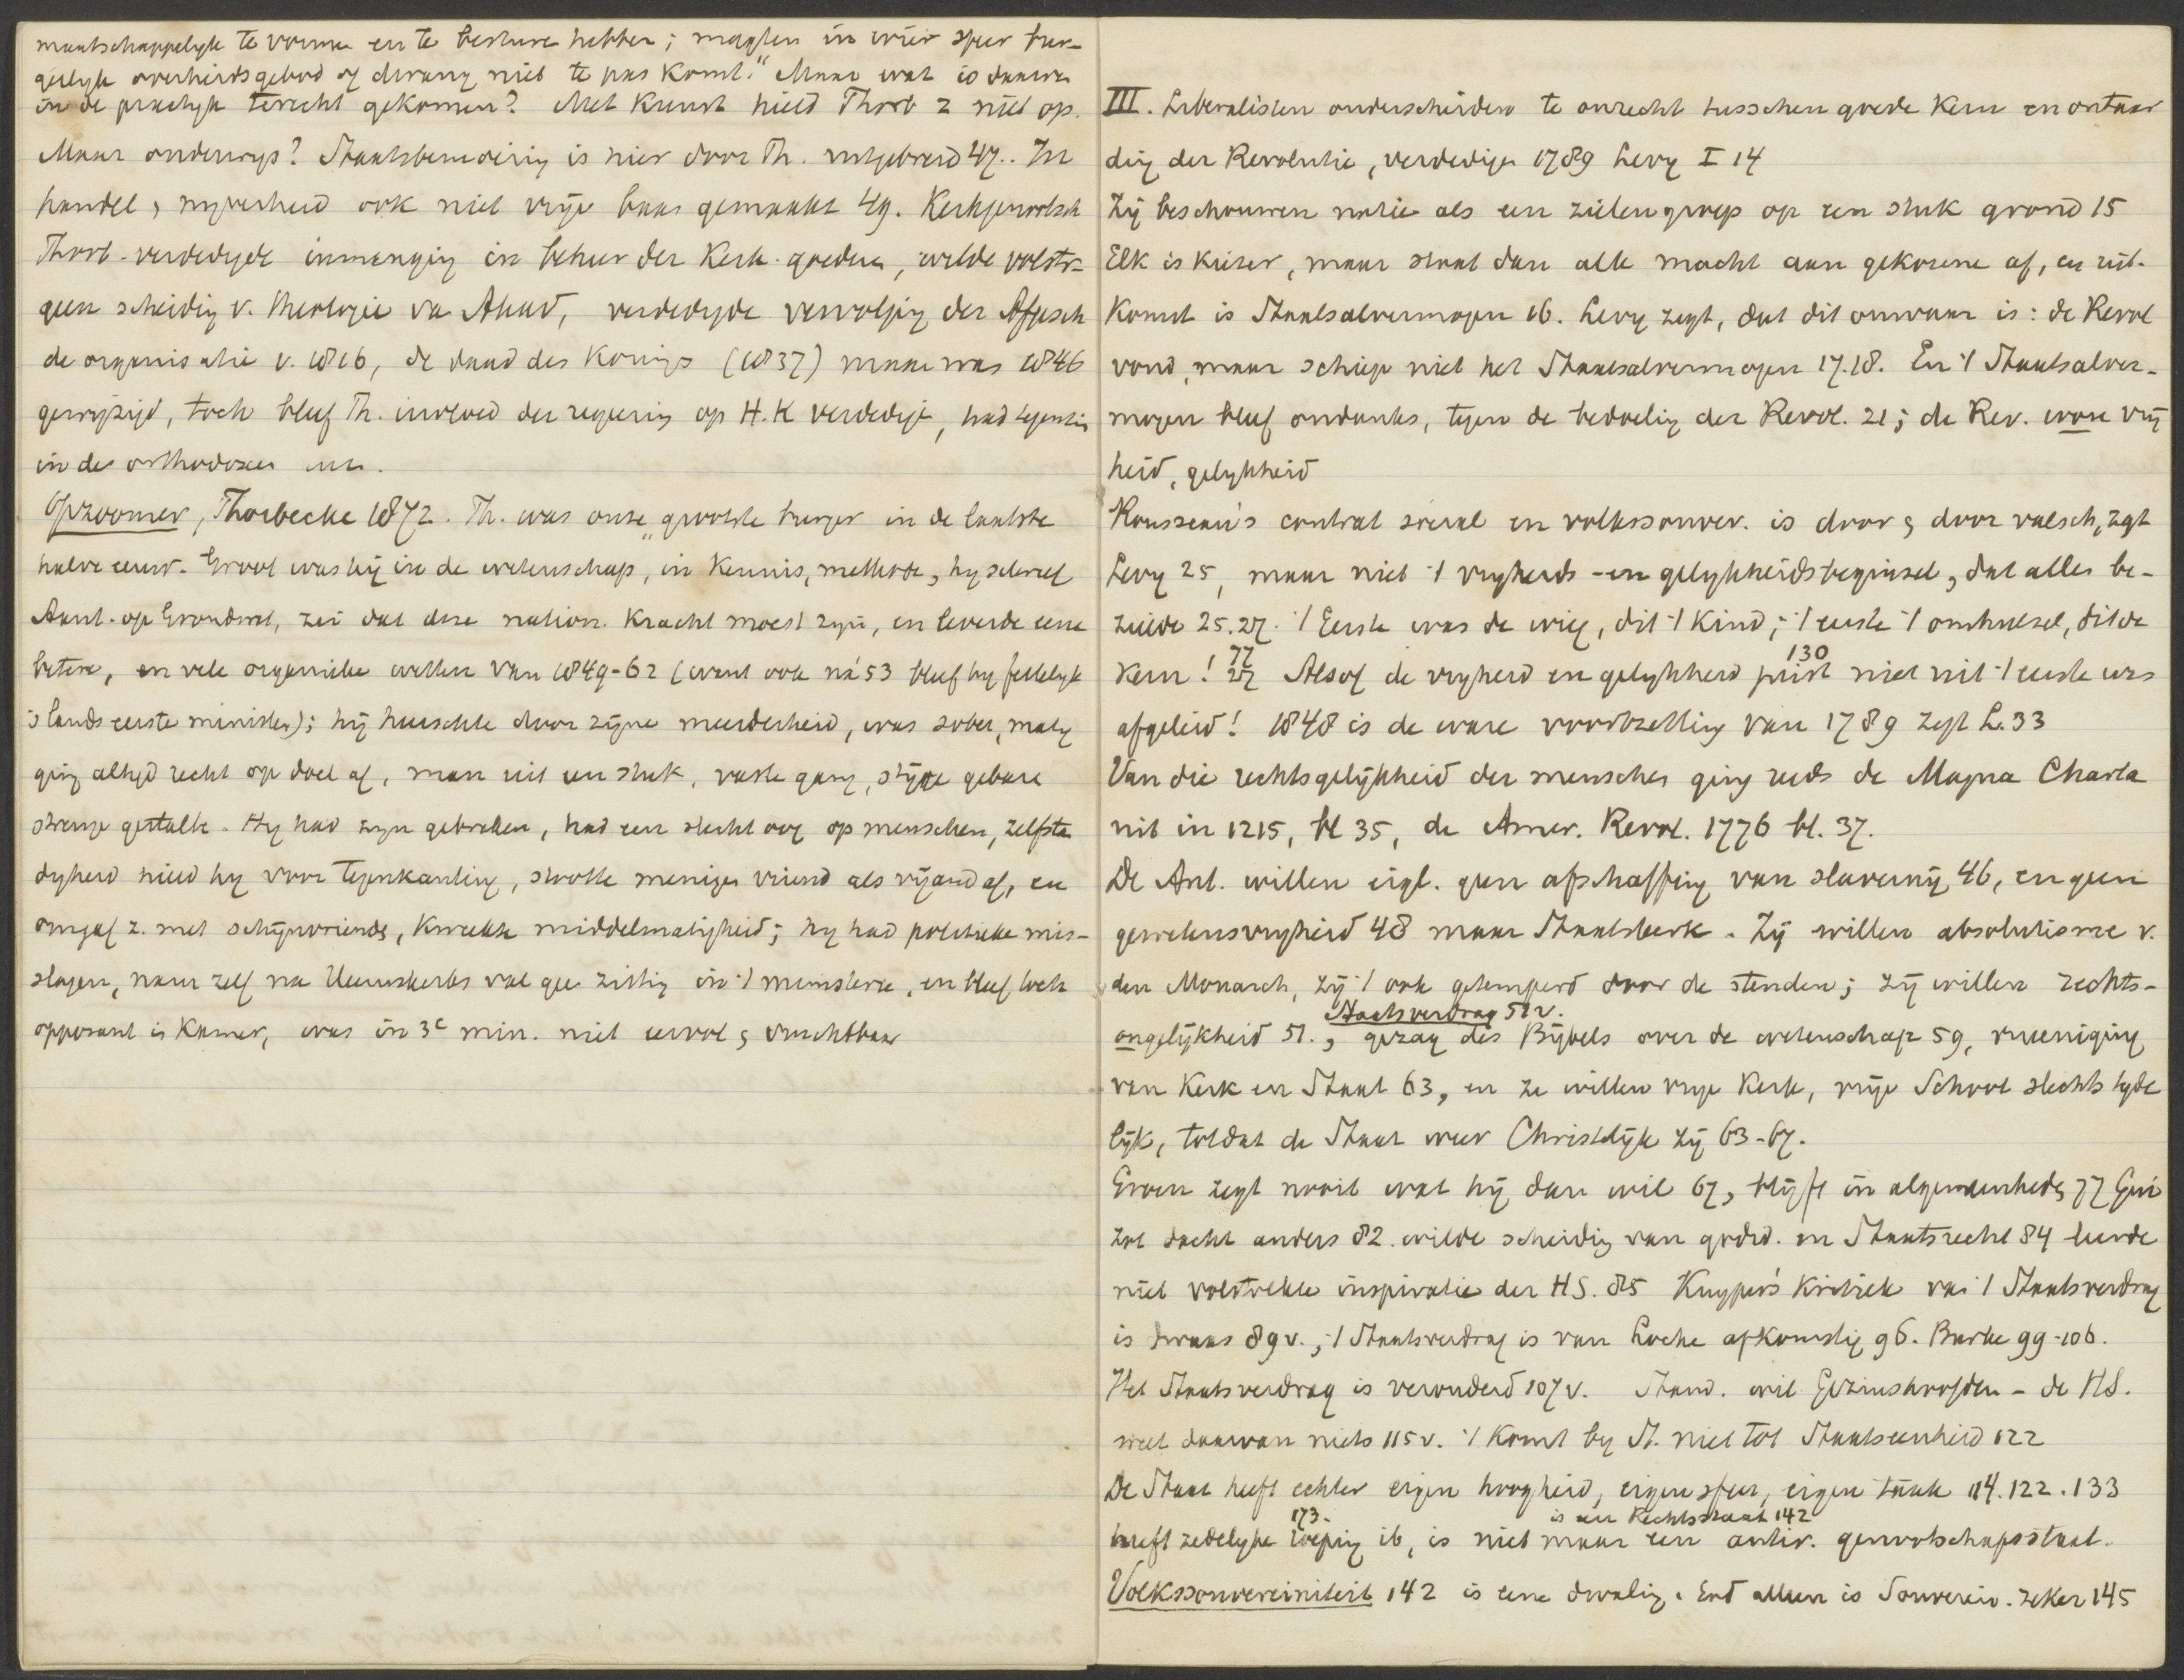 maatschappelijk te vormen en te besturen hebben; magten in wier sfeer bur-
gerlijk overheidsgebod of dwang niet te pas komt." Maar wat is daarvan
in de practijk terecht gekomen? Met Kunst hield Thorb z niet op.
Maar onderwijs? Staatsbemoeiing is hier door Th. uitgebreid 47.. In
handel & nijverheid ook niet vrije baan gemaakt 49. Kerkgenootsch
Thorb. verdedigde inmenging in beheer der Kerk. goederen, wilde volstr-
geen scheiding v. theologie van Akad, verdedigde vervolging der Afgesch
de organisatie v. 1816, de daad des Konings (1837) maar was 1846
gewijzigd, toch bleef Th. invloed der regering op H.K verdedig, had tegenzin
in de orthodoxen enz.
Opzoomer, Thorbecke 1872. Th. was onze „grootste burger in de laatste
halve eeuw. Groot was hij in de wetenschap, in Kennis, methode, hij schreef
Aant. op Grondwet, zei dat deze nation. Kracht moest zijn, en leverde eene
betere, en vele organieke wetten van 1849-62 (want ook ná 53 bleef hij feitelijk
's lands eerste minister); hij heerschte door zijne meerderheid, was sober, matig
ging altijd recht op doel af, man uit een stuk, vaste gang, stijve gebaren
strenge gestalte. Hij had zijn gebreken, had een slecht oog op menschen, zelfstan
digheid hield hij voor tegenkanting, stootte menigen vriend als vijand af, en
omgaf z. met schijnvrienden, kweekte middelmatigheid; hij had politieke mis-
slagen, nam zelf na Heemskerks val geen zitting in 't ministerie, en bleef toch
opposant in Kamer, was in 3e min. niet eervol & vruchtbaar
III. Liberalisten onderscheiden te onrecht tusschen goede Kern en ontaar
ding der Revolutie, verdedigen 1789 Levy I 14
Zij beschouwen natie als een zielengroep op een stuk grond 15
Elk is Kiezer, maar staat dan alle macht aan gekozene af, en uit-
komst is Staatsalvermogen 16. Levy zegt, dat dit onwaar is: de Revol
vond, maar schiep niet het Staatsalvermogen 17.18. En 't Staatsalver-
mogen bleef ondanks, tegen de bedoeling der Revol. 21; de Rev. wou vrij
heid, gelijkheid
Rousseau's contrat social en volkssouver. is door & door valsch, zegt
Levy 25, maar niet 't vrijheids- en gelijkheidsbeginsel, dat alles be-
zielde 25.27. 't Eerste was de wieg, dit 't Kind; 't eerste 't omhulsel, dit de
77 130
Kern! 27 Alsof de vrijheid en gelijkheid juist niet uit 't eerste was
afgeleid! 1848 is de ware voortzetting van 1789 zegt L. 33
Van die rechtsgelijkheid der menschen ging reeds de Magna Charta
uit in 1215, bl 35, de Amer. Revol. 1776 bl. 37.
De Ant. willen eigl. geen afschaffing van slavernij 46, en geen
gewetensvrijheid 48 maar Staatskerk. Zij willen absolutisme v.
den Monarch, zij 't ook getemperd door de stenden; zij willen rechts-
Staatsverdrag 51 v.
ongelijkheid 51., gezag des Bijbels over de wetenschap 59, vereeniging
van Kerk en Staat 63, en ze willen vrije Kerk, vrije School slechts tijde
lijk, totdat de Staat weer Christelijk zij 63-67.
Groen zegt nooit wat hij dan wil 67, blijft in algemeenheden 77 Gui
zot dacht anders 82. wilde scheiding van godsd. en Staatsrecht 84 leerde
niet volstrekte inspiratie der HS. 85 Kuyper's Kritiek van 't Staatsverdrag
is dwaas 89 v., 't Staatsverdrag is van Locke afkomstig 96. Burke 99-106.
Het Staatsverdrag is verouderd 107 v. Stand. wil Gezinshoofden - de HS.
weet daarvan niets 115 v. 't Komt bij St. niet tot Staatseenheid 122
De Staat heeft echter eigen hoogheid, eigen sfeer, eigen taak 114.122.133
173. is een Rechtsstaat 142
heeft zedelijke roeping ib, is niet maar een antir. genootschapsstaat.
Volkssouvereiniteit 142 is eene dwaling. God alleen is Souverein. zeker 145